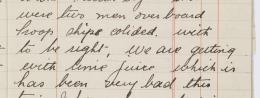 were two men over board
troop ships colided. with
to be right, we are getting
with lime juice which is
has been very bad this